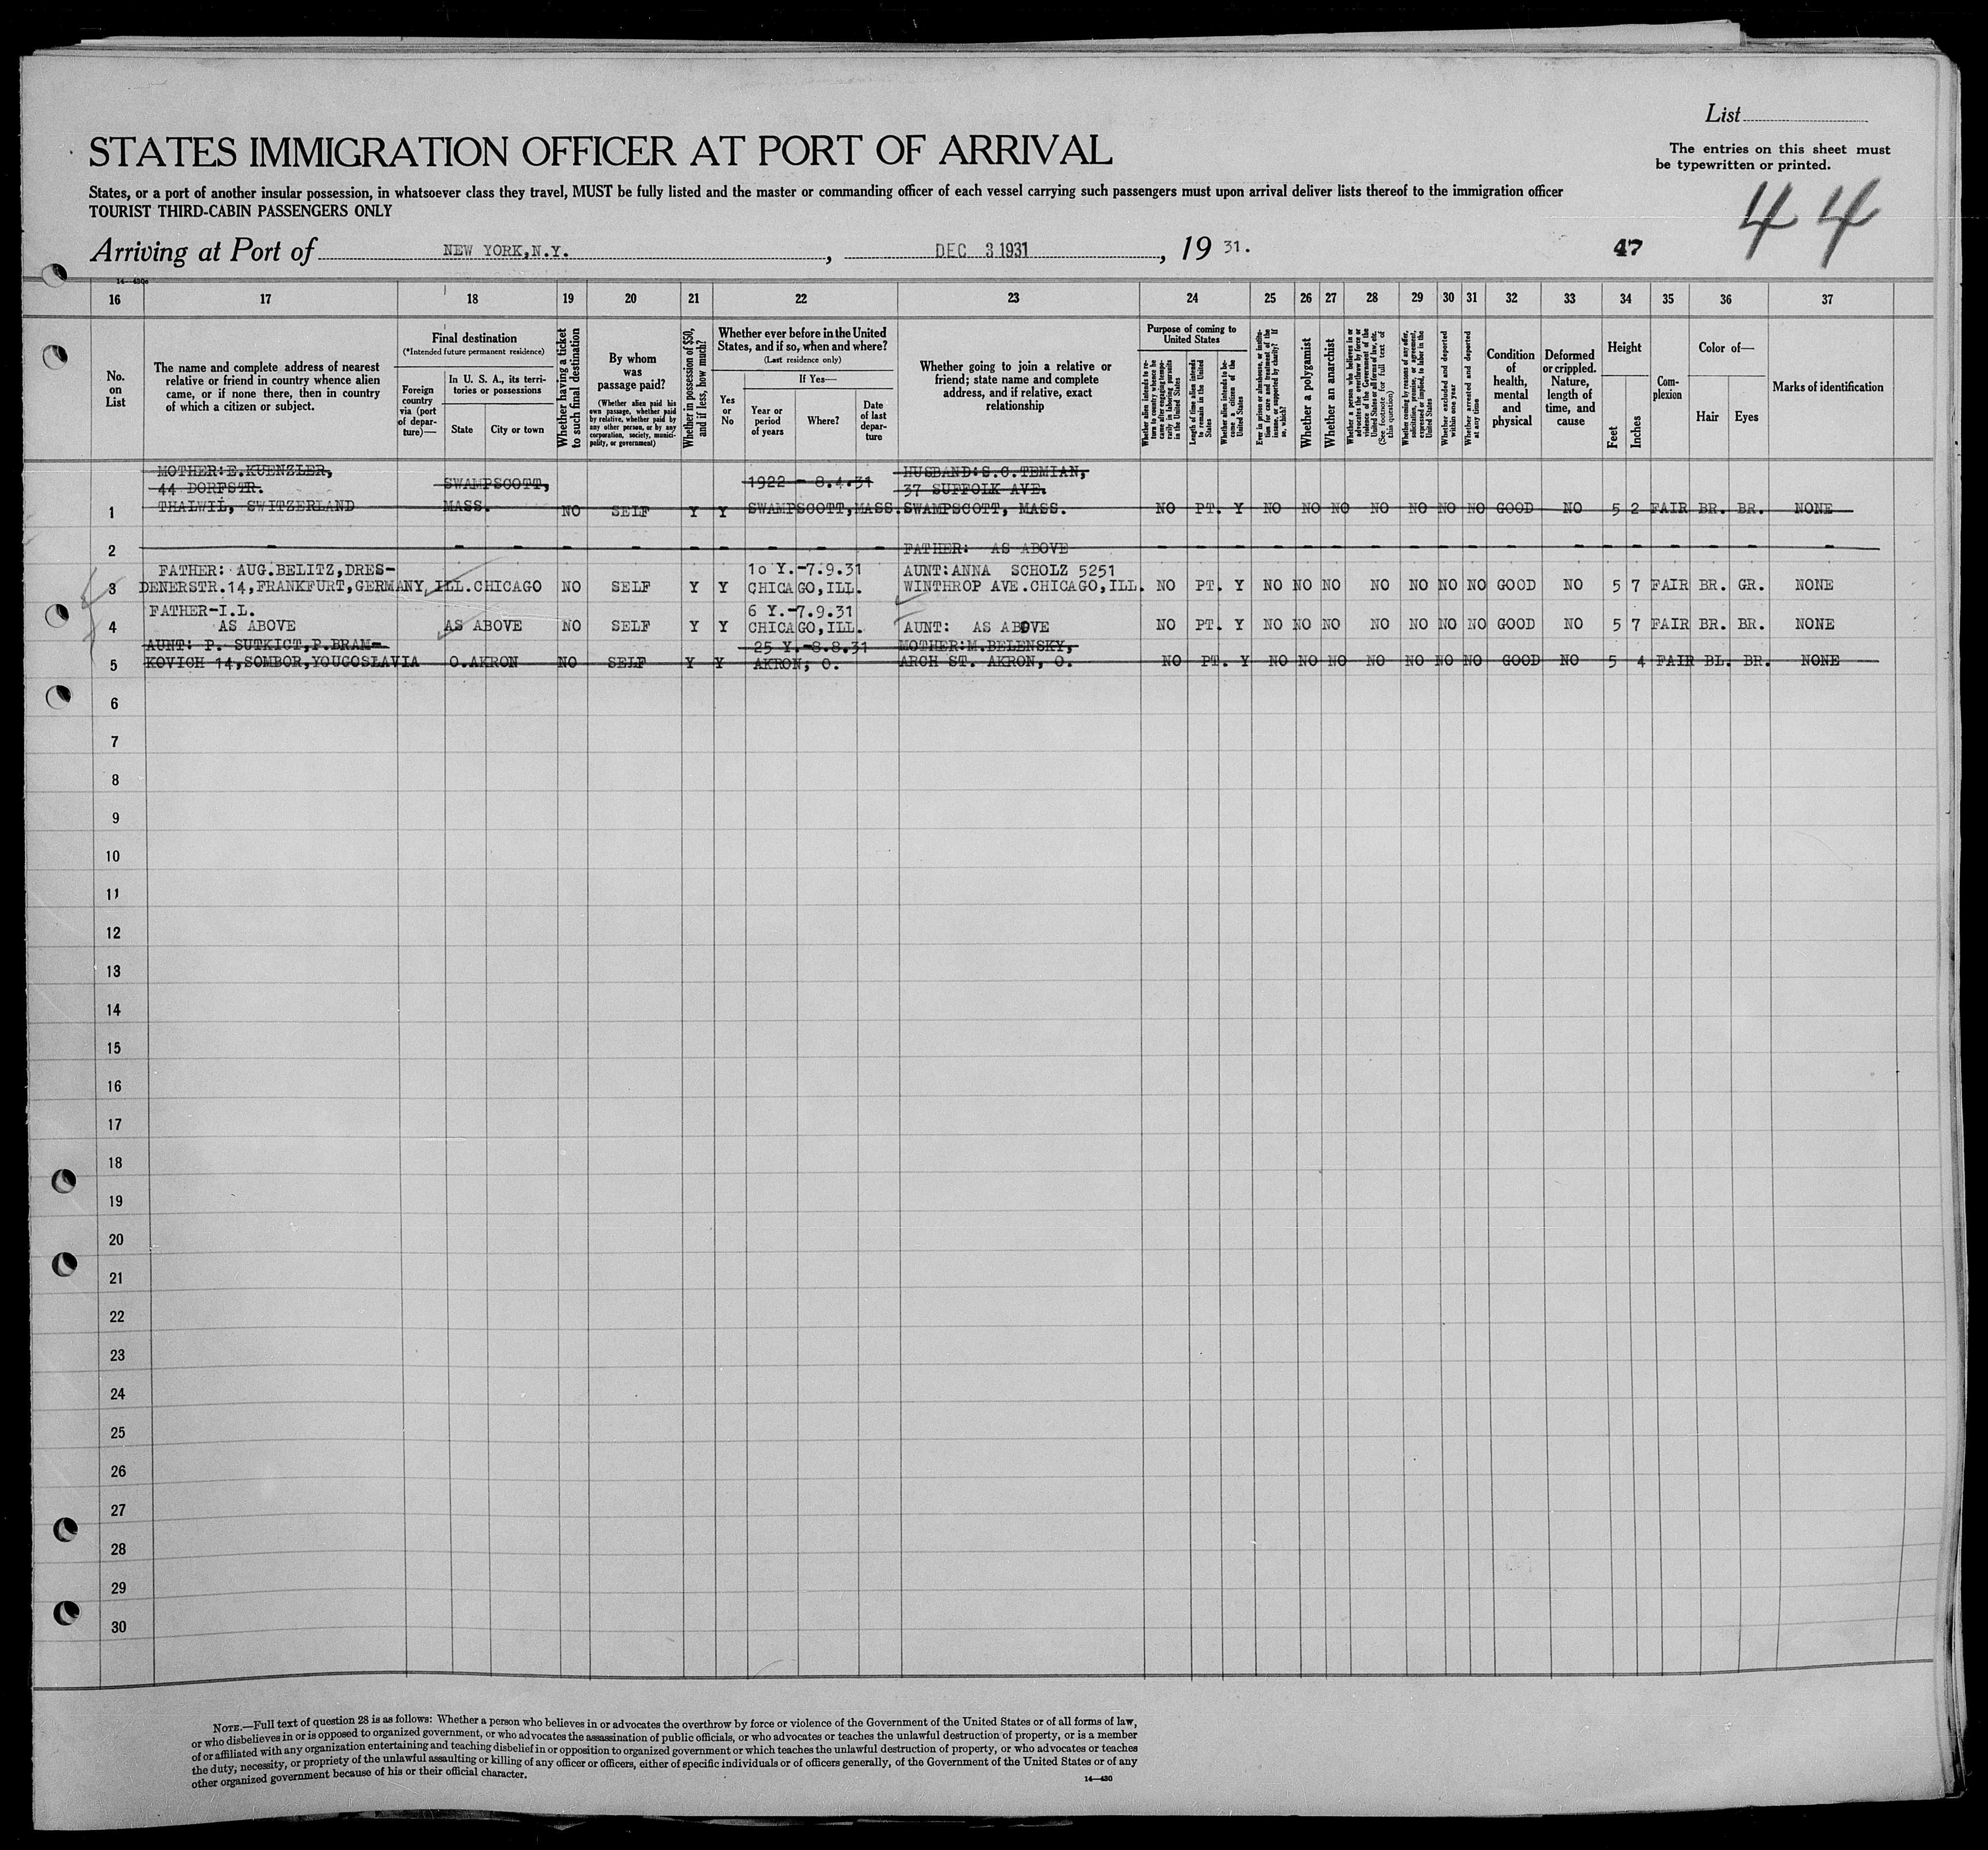 List
STATES IMMIGRATION OFFICER AT PORT OF ARRIVAL
The entries on this sheet must
be typewritten or printed.
States, or a port of another insular possession, in whatsoever class they travel, MUST be fully listed and the master or commanding officer of each vessel carrying such passengers must upon arrival deliver lists thereof to the immigration officer
TOURIST THIRD-CABIN PASSENGERS ONLY
44
Arriving at Port of NEW YORK,N.Y. , DEC 3 1931 , 19 31.
47
14—430
16 17 18 19 20 21 22 23 24 25 26 27 28 29 30 31 32 33 34 35 36 37
No.
on
List
The name and complete address of nearest
relative or friend in country whence alien
came, or if none there, then in country
of which a citizen or subject.
Final destination
(*Intended future permanent residence)
Foreign
country
via (port
of depar-
ture)—
In U. S. A., its terri-
tories or possessions
State City or town
Whether having a ticket
to such final destination
By whom
was
passage paid?
(Whether alien paid his
own passage, whether paid
by relative, whether paid by
any other person, or by any
corporation, society, munici-
pality, or government)
Whether in possession of $50,
and if less, how much?
Whether ever before in the United
States, and if so, when and where?
(Last residence only)
Yes
or
No
If Yes—
Year or
period
of years
Where?
Date
of last
depar-
ture
Whether going to join a relative or
friend; state name and complete
address, and if relative, exact
relationship
Purpose of coming to
United States
Whether alien intends to re-
turn to country whence he
came after engaging tempo-
rarily in laboring pursuits
in the United States
Length of time alien intends
to remain in the United
States
Whether alien intends to be-
come a citizen of the
United States
Ever in prison or almshouse, or institu-
tion for care and treatment of the
insane, or supported by charity? If
so, which?
Whether a polygamist
Whether an anarchist
Whether a person who believes in or
advocates the overthrow by force or
violence of the Government of the
United States or all forms of law, etc.
(See footnote for full text of
this question)
Whether coming by reasons of any offer,
solicitation, promise, or agreement,
expressed or implied, to labor in the
United States
Whether excluded and deported
within one year
Whether arrested and deported
at any time
Condition
of
health,
mental
and
physical
Deformed
or crippled.
Nature,
length of
time, and
cause
Height
Feet Inches
Com-
plexion
Color of—
Hair Eyes
Marks of identification
MOTHER:E.KUENZLER, HUSBAND:S.C.TEMIAN,
44 DORFSTR. SWAMPSCOTT, 1922 - 8.4.31 37 SUFFOLK AVE.
1 THALWIL, SWITZERLAND MASS. NO SELF Y Y SWAMPSCOTT,MASS. SWAMPSCOTT, MASS. NO PT. Y NO NO NO NO NO NO NO GOOD NO 5 2 FAIR BR. BR. NONE
2 - - - - - - - - - - FATHER: AS ABOVE - - - - - - - - - - - - - - - - -
FATHER: AUG.BELITZ,DRES- 10 Y.-7.9.31 AUNT:ANNA SCHOLZ 5251
3 DENERSTR.14,FRANKFURT,GERMANY ILL.CHICAGO NO SELF Y Y CHICAGO,ILL. WINTHROP AVE.CHICAGO,ILL. NO PT. Y NO NO NO NO NO NO NO GOOD NO 5 7 FAIR BR. GR. NONE
FATHER-I.L. 6 Y.-7.9.31
4 AS ABOVE AS ABOVE NO SELF Y Y CHICAGO,ILL. AUNT: AS ABOVE NO PT. Y NO NO NO NO NO NO NO GOOD NO 5 7 FAIR BR. BR. NONE
AUNT: P. SUTKICT,P.BRAM- 25 Y.-8.8.31 MOTHER:M.BELENSKY,
5 KOVICH 14,SOMBOR,YOUGOSLAVIA O.AKRON NO SELF Y Y AKRON, O. ARCH ST. AKRON, O. NO PT. Y NO NO NO NO NO NO NO GOOD NO 5 4 FAIR BL. BR. NONE
6
7
8
9
10
11
12
13
14
15
16
17
18
19
20
21
22
23
24
25
26
27
28
29
30
NOTE.—Full text of question 28 is as follows: Whether a person who believes in or advocates the overthrow by force or violence of the Government of the United States or of all forms of law,
or who disbelieves in or is opposed to organized government, or who advocates the assassination of public officials, or who advocates or teaches the unlawful destruction of property, or is a member
of or affiliated with any organization entertaining and teaching disbelief in or opposition to organized government or which teaches the unlawful destruction of property, or who advocates or teaches
the duty, necessity, or propriety of the unlawful assaulting or killing of any officer or officers, either of specific individuals or of officers generally, of the Government of the United States or of any
other organized government because of his or their official character.
14—430